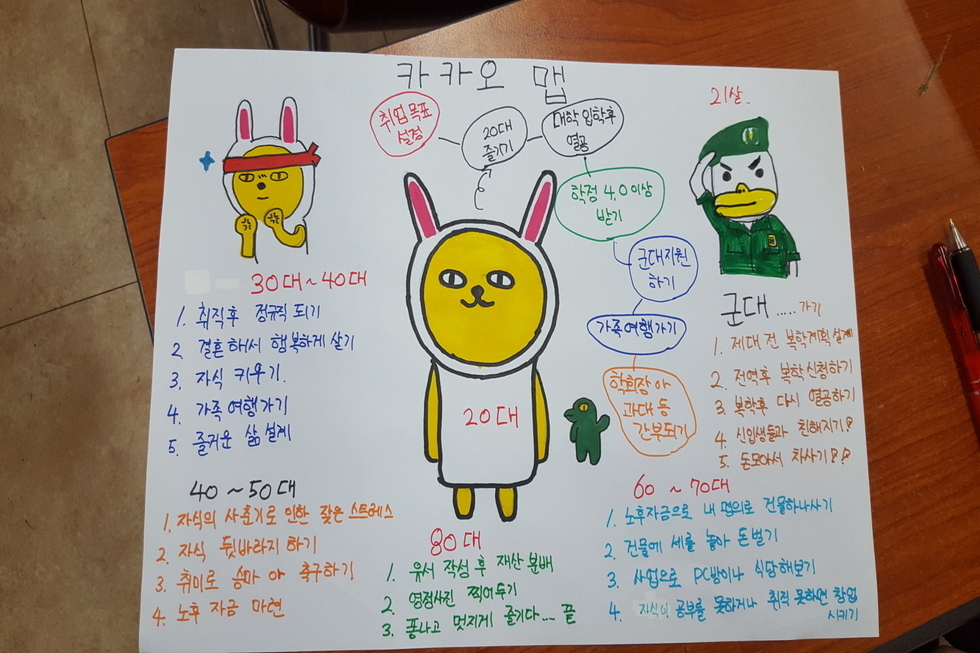 카카오 맵
취업 목표
설정
20대
즐기기
대학 입학후
열공
학점 4.0 이상
받기
군대지원
하기
가족여행가기
학회장 아
과대 등
간부되기
20대
21살..
군대 ..... 가기
1. 제대 전 복학계획 설계
2. 전역후 복학 신청하기
3. 복학후 다시 열공하기
4. 신입생들과 친해지기?
5. 돈모아서 차사기??
30대~40대
1. 취직후 정규직 되기
2 결혼해서 행복하게 살기
3. 자식 키우기.
4. 가족여행가기
5 즐거운 삶 설계
40~50대
1. 자식의 사춘기로 인한 잦은 스트레스
2. 자식 뒷바라지 하기
3. 취미로 승마 아 축구하기
4. 노후 자금 마련
60~70대
1. 노후자금으로 내 명의로 건물하나사기
2. 건물에 세를 놓아 돈벌기
3. 사업으로 PC방이나 식당해보기
4. 자식이 공부를 못하거나 취직 못하면 창업
시키기
80대
1. 유서 작성 후 재산 분배
2. 영정사진 찍어두기
3. 폼나고 멋지게 즐기다.... 끝